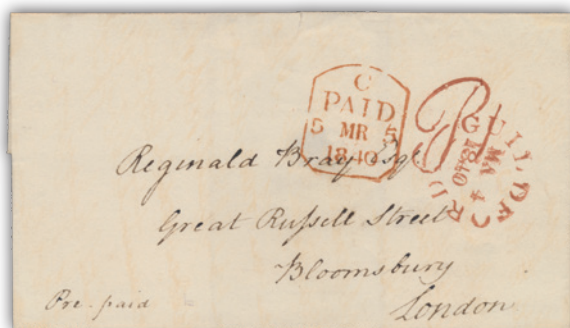 C
PAID
5 MR 5
1840
GUILDFORD
MA 4
1840
Reginald Bray Esqr.
Great Russell Street
Bloomsbury
London
Pre-paid